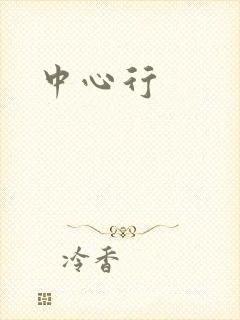 中心行
冷香